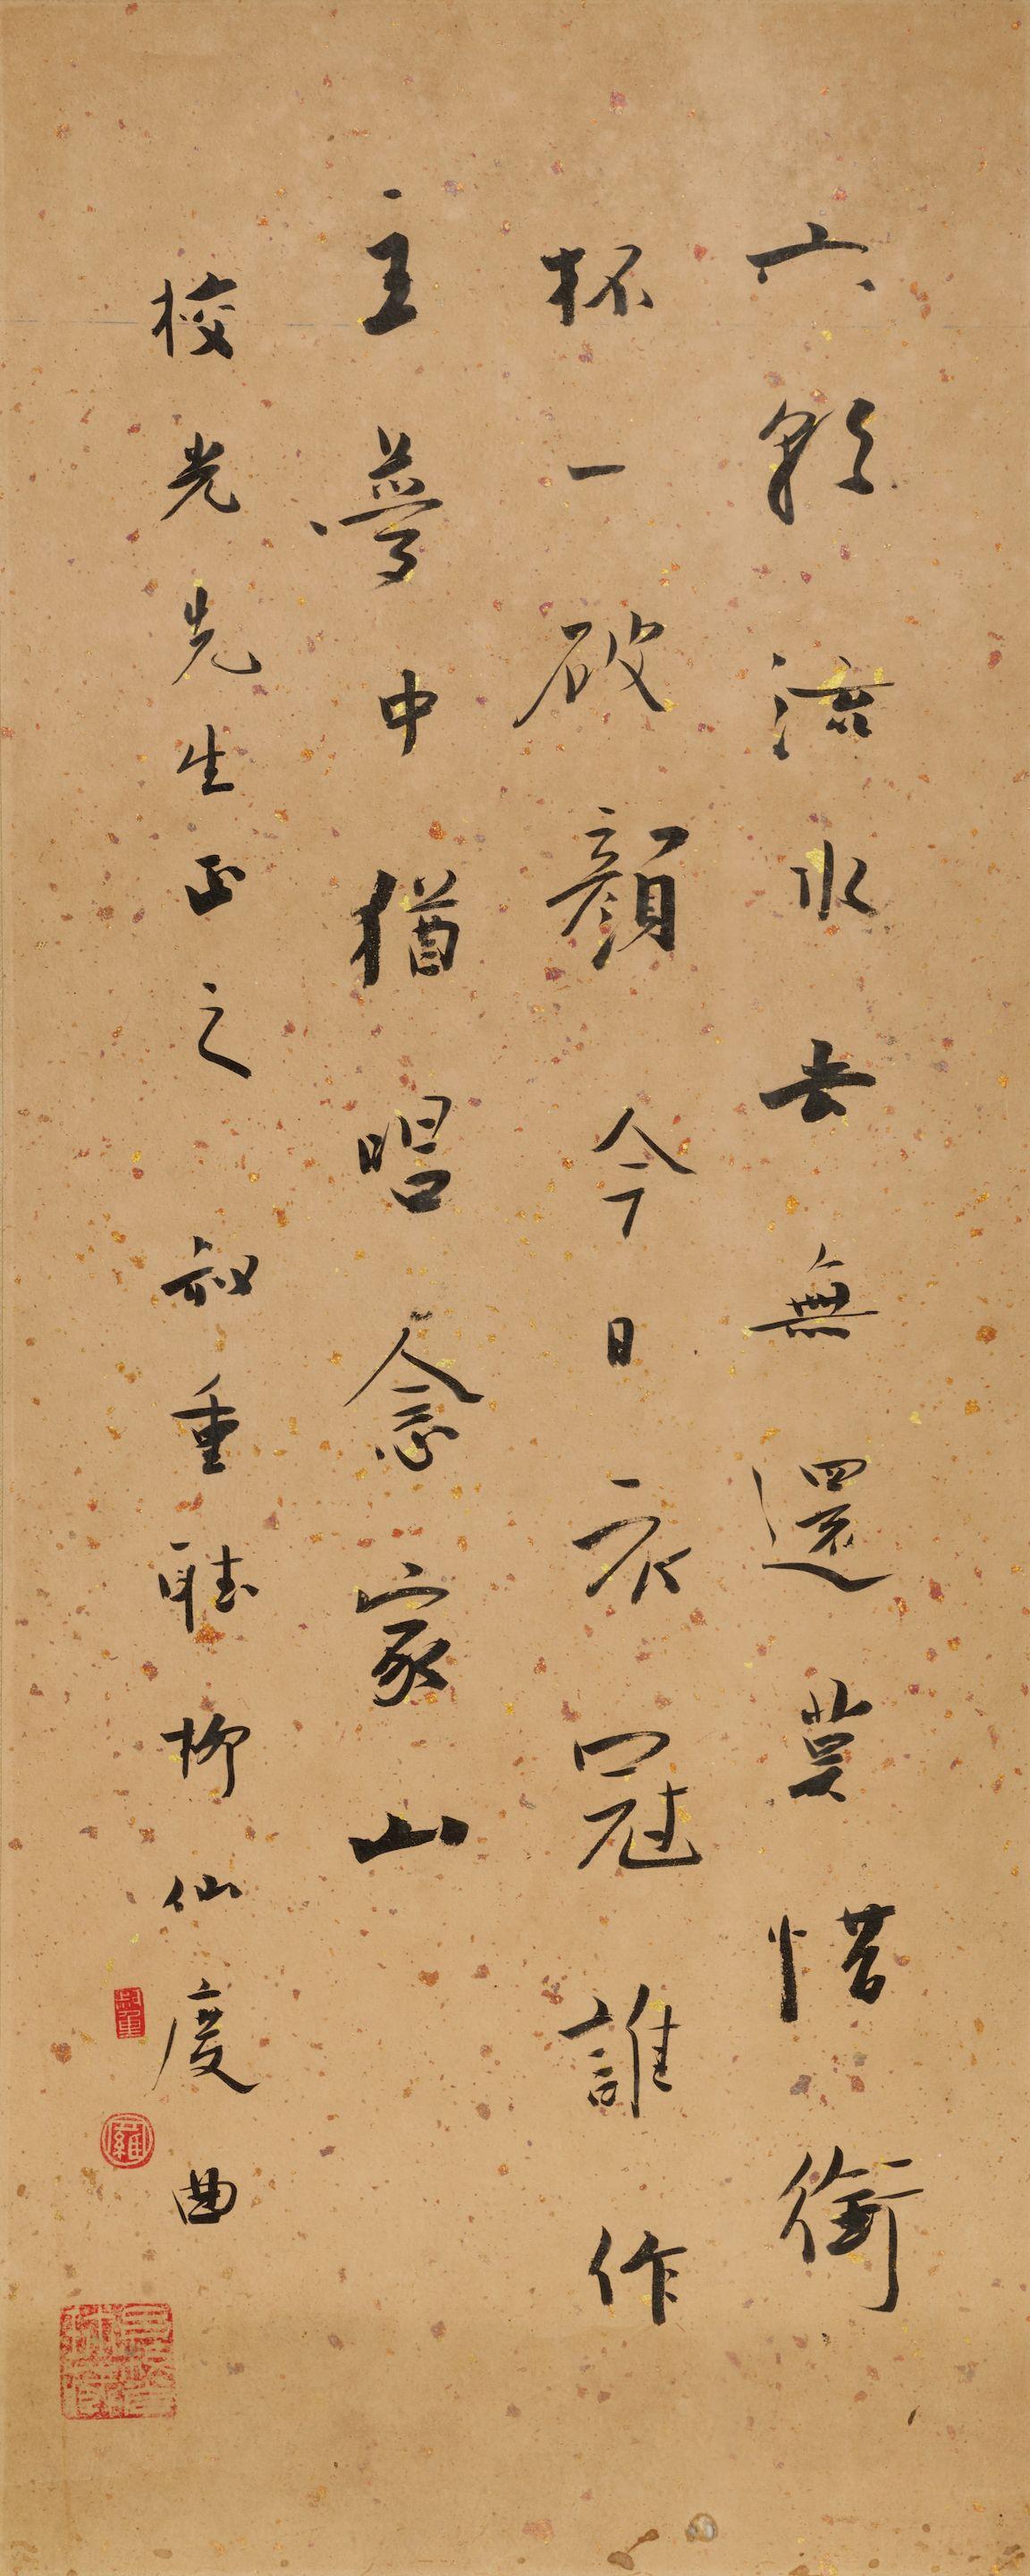 六朝流水去無還莫惜銜
杯一破顏今日衣冠誰作
主夢中猶唱念家山
棪光先生正之 叔重聽柳仙度曲
叔重
羅